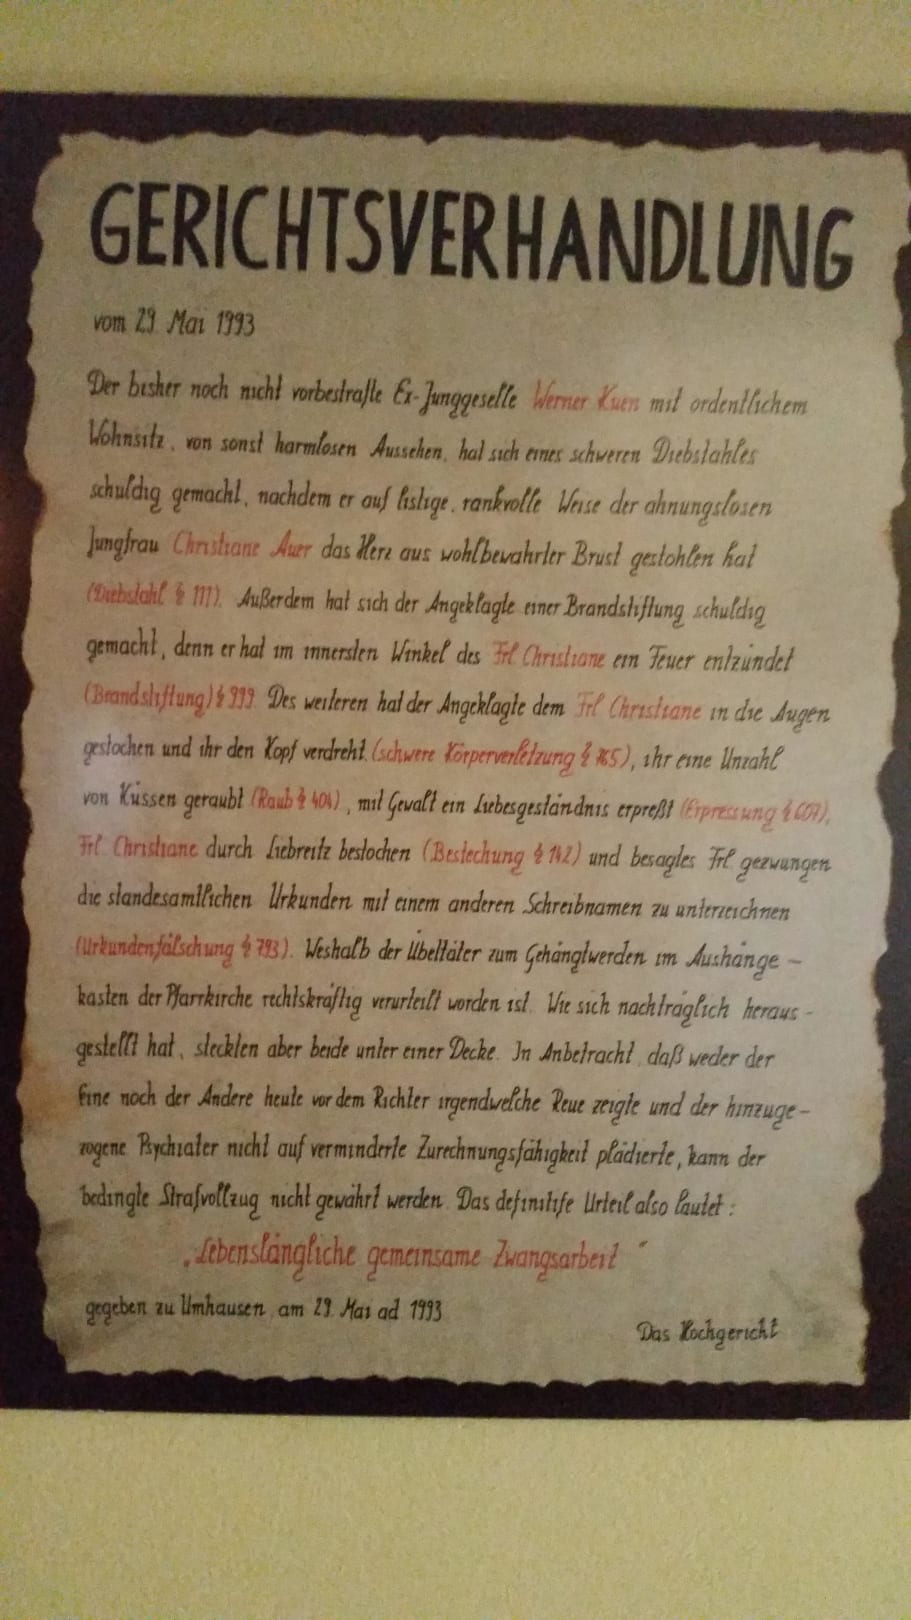 GERICHTSVERHANDLUNG
vom 29. Mai 1993
Der bisher noch nicht vorbestrafte Ex-Junggeselle Werner Kuen mit ordentlichem
Wohnsitz, von sonst harmlosen Aussehen, hat sich eines schweren Diebstahles
schuldig gemacht, nachdem er auf listige, rankvolle Weise der ahnungslosen
Jungfrau Christiane Auer das Herz aus wohlbewahrter Brust gestohlen hat
(Diebstahl § 111). Außerdem hat sich der Angeklagte einer Brandstiftung schuldig
gemacht, denn er hat im innersten Winkel des Frl. Christiane ein Feuer entzündet
(Brandstiftung) § 999. Des weiteren hat der Angeklagte dem Frl. Christiane in die Augen
gestochen und ihr den Kopf verdreht (schwere Körperverletzung § 765), ihr eine Unzahl
von Küssen geraubt (Raub § 404), mit Gewalt ein Liebesgeständnis erpreßt (Erpressung § 607),
Frl. Christiane durch Liebreitz bestochen (Bestechung § 142) und besagtes Frl. gezwungen
die standesamtlichen Urkunden mit einem anderen Schreibnamen zu unterzeichnen
(Urkundenfälschung § 793). Weshalb der Übeltäter zum Gehängtwerden im Aushänge-
kasten der Pfarrkirche rechtskräftig verurteilt worden ist. Wie sich nachträglich heraus-
gestellt hat, steckten aber beide unter einer Decke. In Anbetracht, daß weder der
Eine noch der Andere heute vor dem Richter irgendwelche Reue zeigte und der hinzuge-
zogene Psychiater nicht auf verminderte Zurechnungsfähigkeit plädierte, kann der
bedingte Strafvollzug nicht gewährt werden. Das definitife Urteil also lautet:
„Lebenslängliche gemeinsame Zwangsarbeit"
gegeben zu Umhausen, am 29. Mai ad 1993
Das Hochgericht